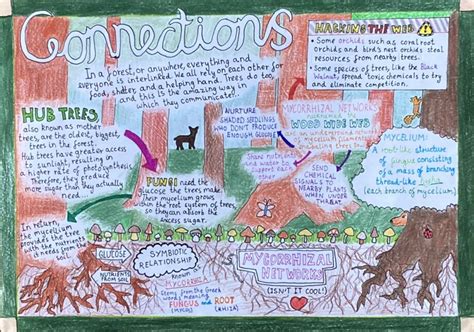 Connections
In a forest, or anywhere, everything and
everyone is interlinked. We all rely on each other for
food, shelter, and a helping hand. Trees do too,
and this is the amazing way in
which they communicate!
HACKING THE WEB
• Some orchids such as coral root
orchids and bird's nest orchids steal
resources from nearby trees.
• Some species of trees, like the Black
Walnut, spread toxic chemicals to try
and eliminate competition.
HUB TREES,
also known as mother
trees, are the oldest, biggest
trees in the forest.
Hub trees have greater access
to sunlight, resulting in
a higher rate of photosynthesis.
Therefore, they produce
more sugar than they actually
need...
FUNGI need the
glucose the trees make.
Their mycelium grows
into the root system of trees,
so they can absorb the
excess sugar.
In return,
the mycelium
provides the tree
with the nutrients
it needs from the
soil.
NURTURE
SHADED SEEDLINGS
WHO DON'T PRODUCE
ENOUGH GLUCOSE
MYCORRHIZAL NETWORKS
WOOD WIDE WEB
Share nutrients
and water to
support each
other
SEND
CHEMICAL
SIGNALS TO
NEARBY PLANTS
WHEN UNDER
THREAT
MYCELIUM:
A root-like structure
of fungus consisting
of a mass of branching
thread-like hyphae
(each branch of mycelium)
GLUCOSE
NUTRIENTS
FROM SOIL
SYMBIOTIC
RELATIONSHIP
known
MYCORRHIZA
Stems from the Greek
words meaning
FUNGUS and ROOT
(MYCO) (RHIZA)
MYCORRHIZAL
NETWORKS
(ISN'T IT COOL!)